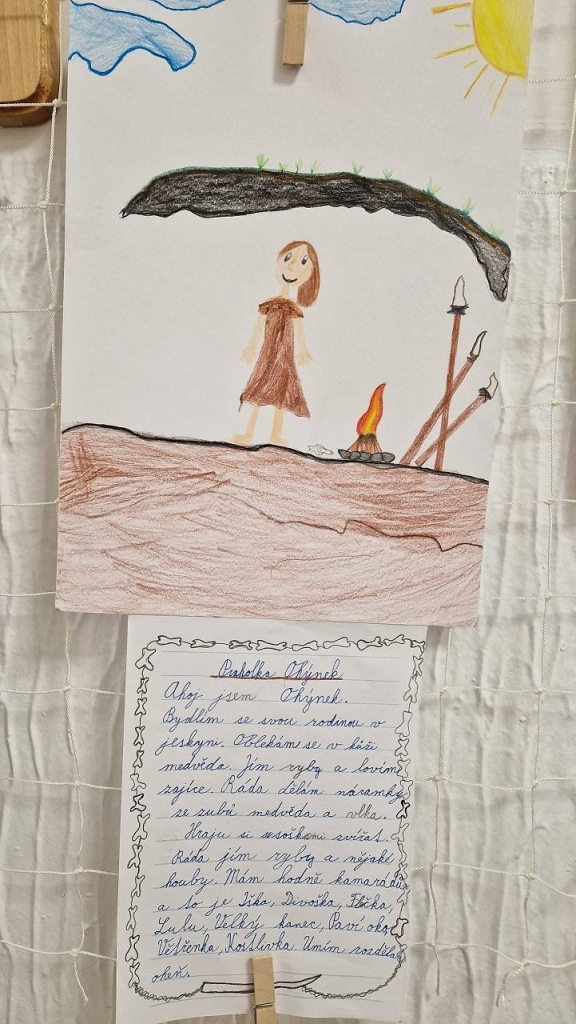 Praholka Ohýnek
Ahoj jsem Ohýnek.
Bydlím se svou rodinou v
jeskyni. Oblekám se v kůži
medvěda. Jím ryby a lovím
zajíce. Ráda dělám náramky
ze zubů medvěda a vlka.
Hraju si se soškami zvířat.
Ráda jím ryby a nějaké
houby. Mám hodně kamarádů
a to je Iška, Divoška,
Lulu, Velký kanec, Paví oko,
Větřenka, Kostlivka. Umím rozdělat
oheň.